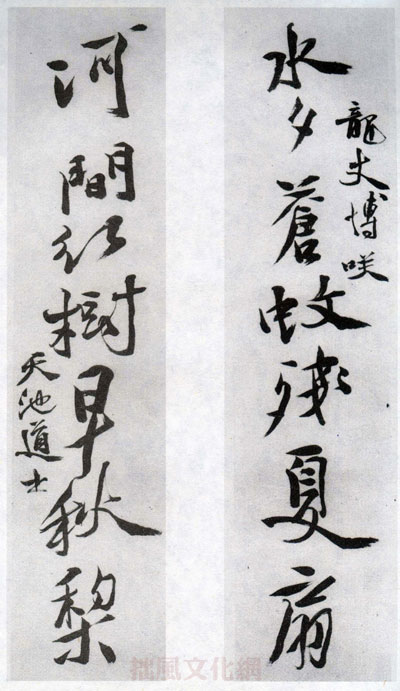 水夕蒼蚊殘夏扇
龍丈博咲
河間紅樹早秋梨
天池道士
拙風文化網